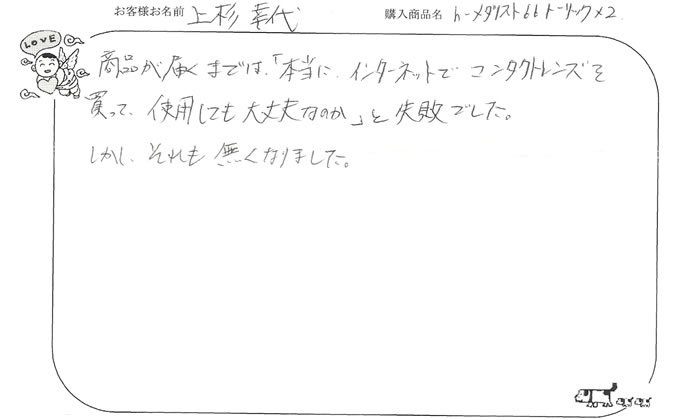 お客様お名前 上杉 幸代 購入商品名 h-メダリスト66トーリック×2
LOVE
商品が届くまでは、「本当に、インターネットで コンタクトレンズを
買って、使用しても大丈夫なのか」と失敗でした。
しかし、それも無くなりました。